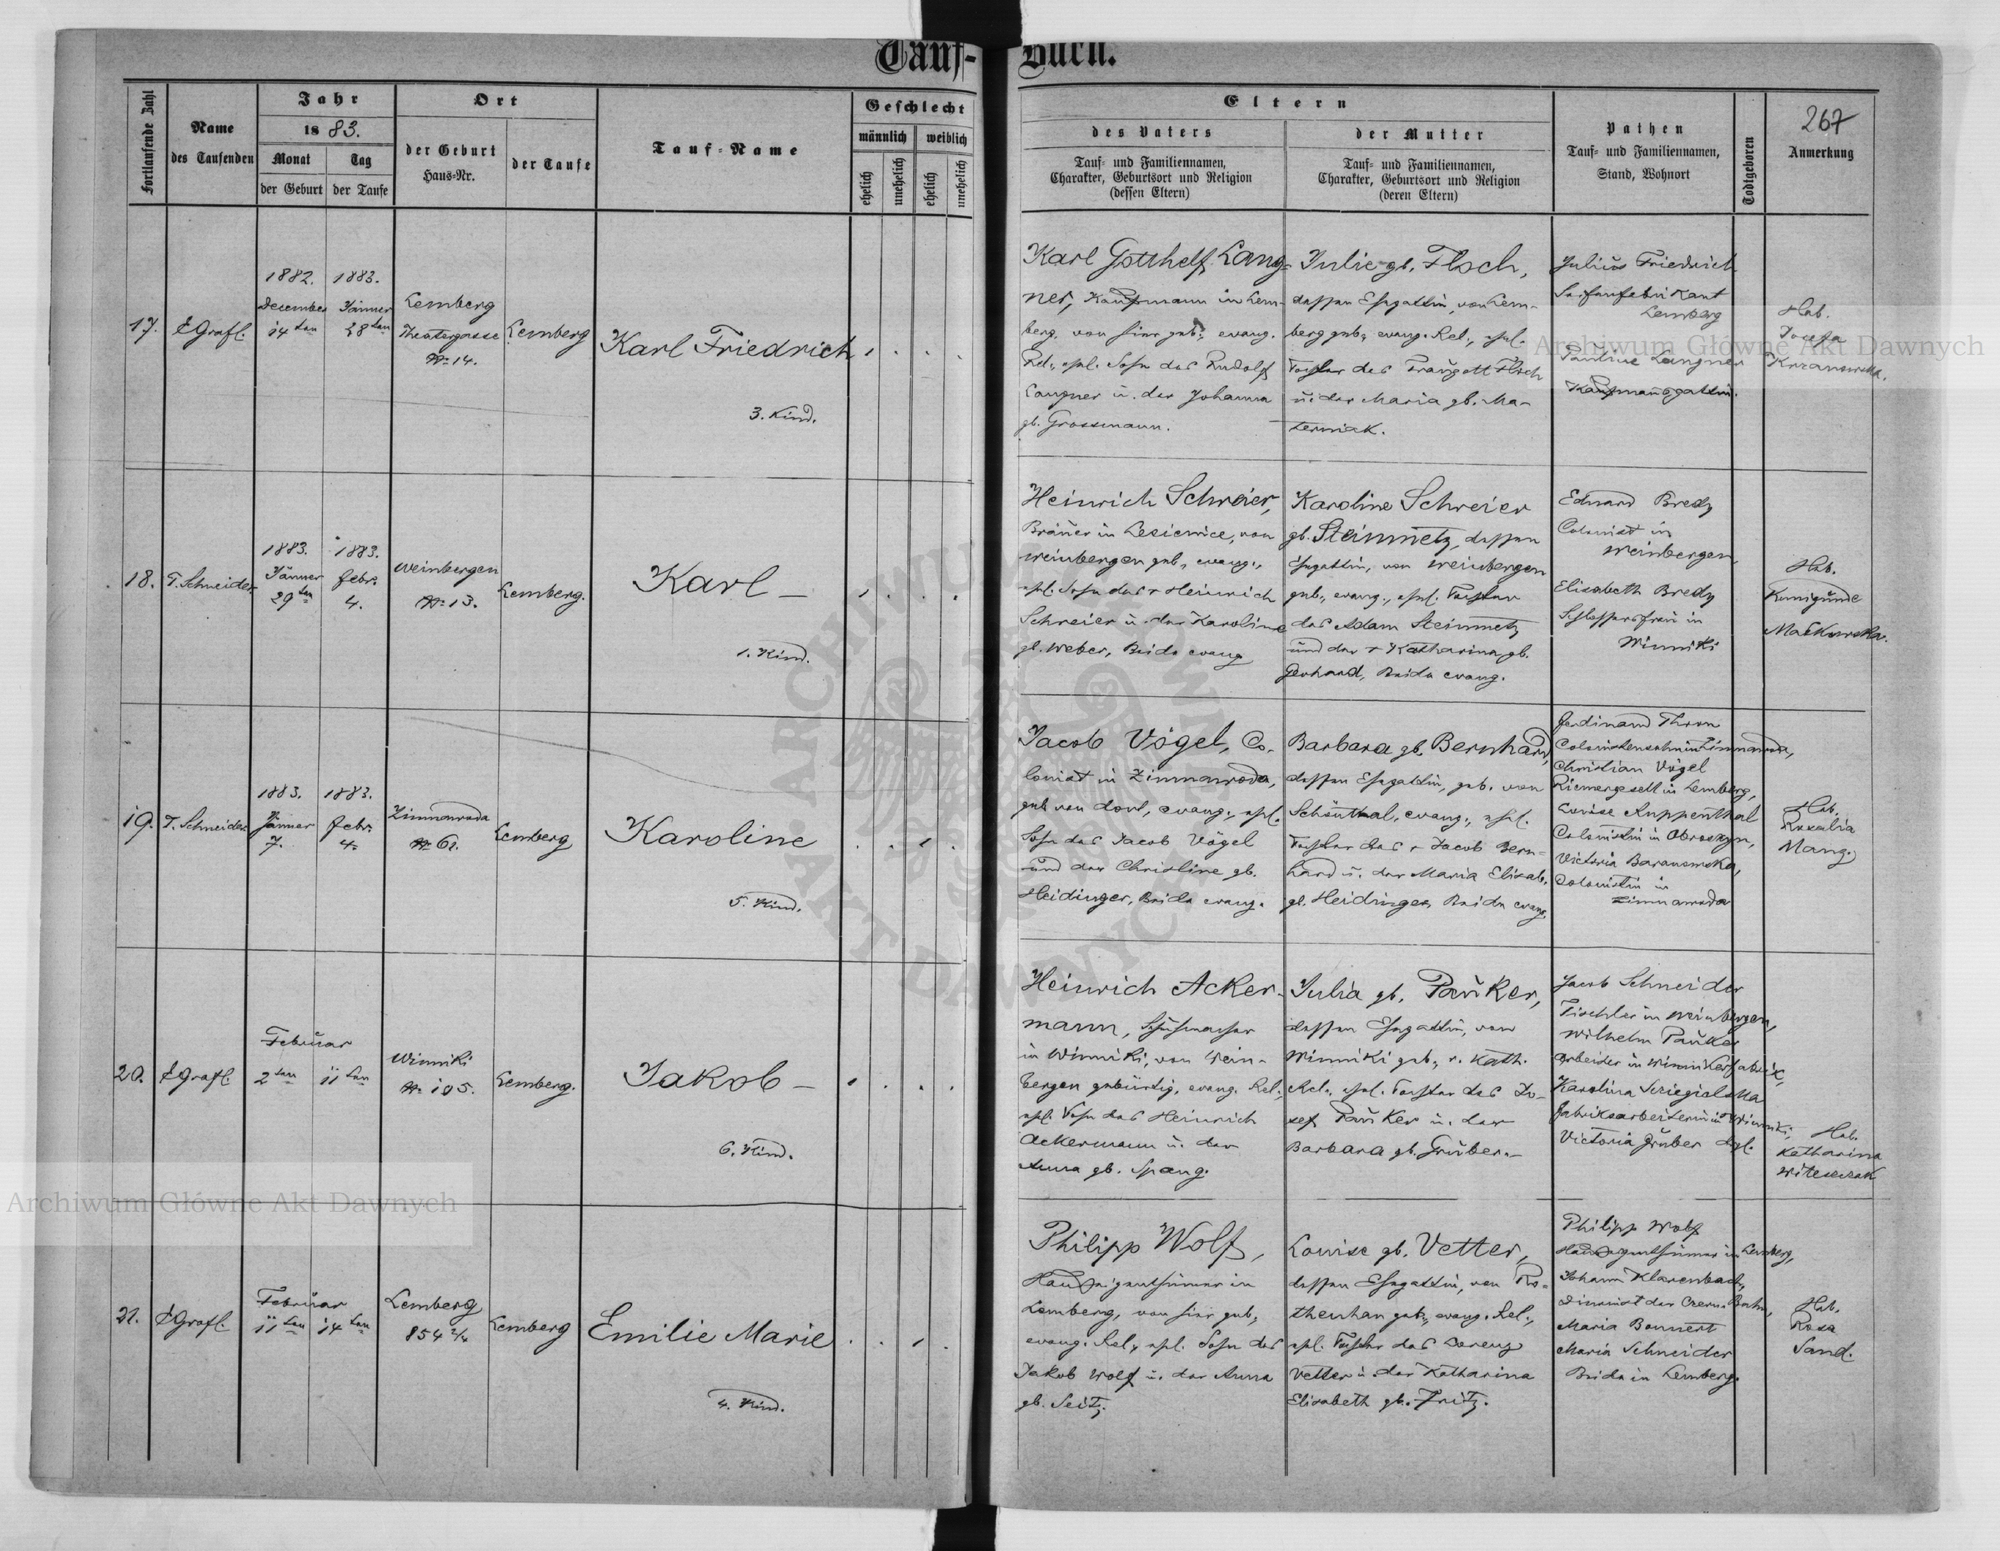 Tauf-Buch.
Fortlaufende Zahl
Name
des Taufenden
Jahr
1883.
Monat
Tag
der Geburt
der Taufe
Ort
der Geburt
Haus-Nr.
der Taufe
Tauf-Name
Geschlecht
männlich
weiblich
ehelich
unehelich
ehelich
unehelich
Eltern
des Vaters
Tauf- und Familiennamen,
Charakter, Geburtsort und Religion
(dessen Eltern)
der Mutter
Tauf- und Familiennamen,
Charakter, Geburtsort und Religion
(deren Eltern)
Pathen
Tauf- und Familiennamen,
Stand, Wohnort
Todtgeboren
267
Anmerkung
17.
EGrafl.
1882.
December
14ten
1883.
Jänner
28ten
Lemberg
Theatergasse
No 14.
Lemberg
Karl Friedrich
3. Kind.
Karl Gotthelf Lang-
ner, Kaufmann in Lem-
berg, von hier geb., evang.
Rel., ehel. Sohn des Rudolf
Langner u. der Johanna
gb. Grossmann.
Julie gb. Floch,
dessen Ehegattin, von Lem-
berg geb., evang. Rel., ehel.
Tochter des Traugott Floch
u. der Maria gb. Ma-
terniak.
Julius Friedrich
Seifenfabrikant
Lemberg
Pauline Langner
Kaufmannsgattin.
Heb.
Josefa
18.
T. Schneider
1883.
Jänner
29ten
1883.
Febr.
4.
Weinbergen
No 13.
Lemberg.
Karl –
1. Kind.
Heinrich Schreier,
Bräuer in Lesienice, von
Weinbergen geb., evang.,
ehel. Sohn des + Heinrich
Schreier u. der Karoline
gb. Weber, Beide evang
Karoline Schreier
gb. Steinmetz, dessen
Ehegattin, von Weinbergen
geb., evang., ehel. Tochter
des Adam Steinmetz
und der + Katharina gb.
Gerhard, Beide evang.
Eduard Bredy
Colonist in
Weinbergen
Elisabeth Bredy
Schlossersfrau in
Winniki
Heb.
Kunigunde
Mackowska.
19.
T. Schneider
1883.
Jänner
7.
1883.
Febr.
4.
Zimmanroda
No 61.
Lemberg
Karoline
5. Kind.
Jacob Vögel, Co-
lonist in Zimmanroda,
geb. von dort, evang., ehel.
Sohn des Jacob Vögel
und der Christine gb.
Heidinger, Beide evang.
Barbara gb. Bernhard,
dessen Ehegattin, geb. von
Schönthal, evang., ehel.
Tochter des + Jacob Bern-
hard u. der Maria Elisab.
gb. Heidinger, Beide evang.
Ferdinand Thron
Colonistensohn in Zimmanroda,
Christian Vögel
Riemergesell in Lemberg,
Louise Ruppenthal
Colonistin in Obroszyn,
Victoria Baranowska,
Colonistin in
Zimmanroda
Heb.
Rosalia
Mang.
20.
EGrafl.
Februar
2ten
11ten
Winniki
No 105.
Lemberg.
Jakob –
6. Kind.
Heinrich Acker-
mann, Schuhmacher
in Winniki, von Wein-
bergen gebürtig, evang. Rel.,
ehel. Sohn des Heinrich
Ackermann u. der
Anna gb. Spang.
Julia gb. Pauker,
dessen Ehegattin, von
Winniki geb., r. kath.
Rel., ehel. Tochter des Jo-
sef Pauker u. der
Barbara gb. Gruber.
Jacob Schneider
Tischler in Weinbergen,
Wilhelm Pauker
Arbeiter in Winnikerfabrik,
Fabriksarbeiterin in Winniki,
Victoria Gruber dgl.
Heb.
Katharina
21.
EGrafl.
Februar
11ten
14ten
Lemberg
854 2/4
Lemberg
Emilie Marie
4. Kind.
Philipp Wolf,
Hauseigenthümer in
Lemberg, von hier geb.,
evang. Rel., ehel. Sohn des
Jakob Wolf u. der Anna
gb. Seitz.
Louise gb. Vetter,
dessen Ehegattin, von Ro-
thenhan geb., evang. Rel.,
ehel. Tochter des Lorenz
Vetter u. der Katharina
Elisabeth gb. Fritz.
Philipp Wolf
Hauseigenthümer in Lemberg,
Johann Klarenbach,
Maria Bonnert
Maria Schneider
Beide in Lemberg.
Heb.
Rosa
Sand.
Archiwum Główne Akt Dawnych
Archiwum Główne Akt Dawnych